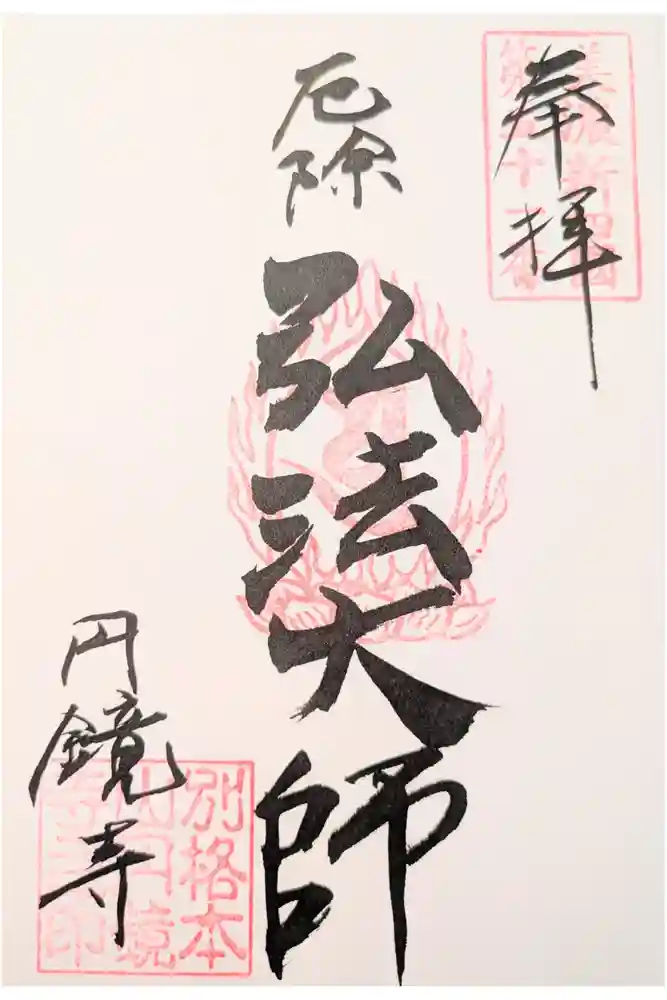 奉拝
厄除
弘法大師
円鏡寺
別格本
山円鏡
寺之印